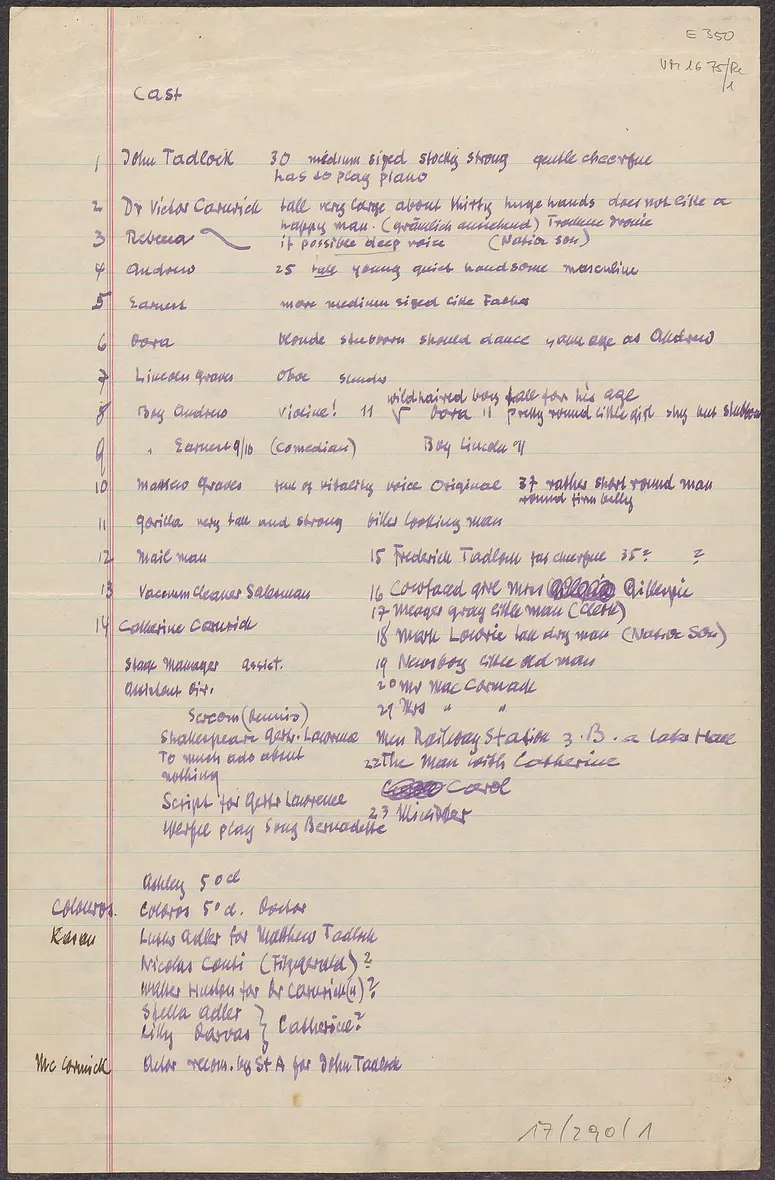 E 350
Cast
1 John Tadlock 30 medium sized stocky strong gentle cheerful
has to play piano
2 Dr Victor Carwrick tall very large about thirty huge hands does not like a
happy man. (grämlich aussehend)
3 Rebecca if possible deep voice (Native Son)
4 Andrew 25 tall young quiet handsome masculine
5 Earnest more medium sized like Father
6 Dora blonde stubborn should dance same age as Andrew
7 Lincoln Graves Oboe
wildhaired boy tall for his age
8 Boy Andrew Violine! 11 Dora 11 pretty round little girl shy but stubborn
9 " Earnest 9/10 (Comedian) Boy Lincoln 11
10 Graves of vitality voice Original 37 rather short round man
round firm belly
11 Gorilla very tall and strong killer looking man
12 Mail man 15 Frederick Tadlock cheerful 35? ?
13 Vacuum Cleaner Salesman 16 Cowfaced girl Mrs Gillespie
17 Meager gray little man (Clerk)
14 Catherine Carwrick
18 Mark Lowrie tall dry man (Native Son)
Stage Manager assist. 19 Newsboy little old man
Assistant Dir. 20 Mr Mac Cormack
21 Mrs " "
Shakespeare Gertr. Lawrence Men Railway Station z. B. a
To much ado about 22 The Man with Catherine
nothing
Carol
Script for Gertr Lawrence
23 Minister
Werfel play Song Bernadette
Ashley 5 o cl
Colouros. Coloros 5 o cl. Doctor
Kasan Luther Adler for Matthew Tadlock
Nicolas Conti (Fitzgerald)?
Walter Huston for Dr Carwrick(n)?
Stella Adler
Lilly Darvas } Catherine?
Mc Cormick Actor recom. by St A for John Tadlock
17/290/1